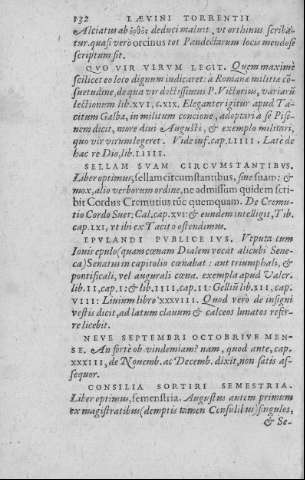 132 LAEVINI TORRENTII
Alciatus ab ὀρθὸς deduci maluit, vt orthinus scriba-
tur. quasi verò orcinus tot Pandectarum locis mendose
scriptum sit.
QVO VIR VIRVM LEGIT. Quem maximè
scilicet eo loco dignum iudicaret: à Romanæ militiæ cō-
suetudine, de qua vir doctissimus P. Victorius, variarū
lectionem lib. XVI. c. XIX. Eleganter igitur apud Ta-
citum Galba, in militum concione, adoptari à se Piso-
nem dicit, more diui Augusti, & exemplo militari,
quo vir virum legeret. Vide inf. cap. LIIII. Latè de
hac re Dio, lib. LIIII.
SELLAM SVAM CIRCVMSTANTIBVS.
Liber optimus, sellam circumstantibus, sine suam: &
mox, alio verborum ordine, ne admissum quidem scri-
bit Cordus Cremutius tūc quemquam. De Cremu-
tio Cordo Suet. Cal. cap. XVI. & eundem intelligit, Tib.
cap. LXI, vt ibi ex Tacito ostendimus.
EPVLANDI PVBLICE IVS. Veputa cum
Iouis epulo (quam cœnam Dialem vocat alicubi Sene-
ca) Senatus in capitolio cœnabat: aut triumphali, &
pontificali, vel augurali cœna. exempla apud Valer.
lib. II, cap. I: & lib. IIII, cap. II: Gelliū lib. XII, cap.
VIII: Liuium libro XXXVIII. Quod verò de insigni
vestis dicit, ad latum clauum & calceos lunatos refer-
re licebit.
NEVE SEPTEMBRI OCTOBRIVE MEN-
SE. An fortè ob vindemiam? nam, quod ante, cap.
XXXIII, de Nouemb. ac Decemb. dixit, non satis as-
sequor.
CONSILIA SORTIRI SEMESTRIA.
Liber optimus, semenstria. Augustus autem primum
ex magistratibus (demptis tamen Consulibus) singulos,
& Se-